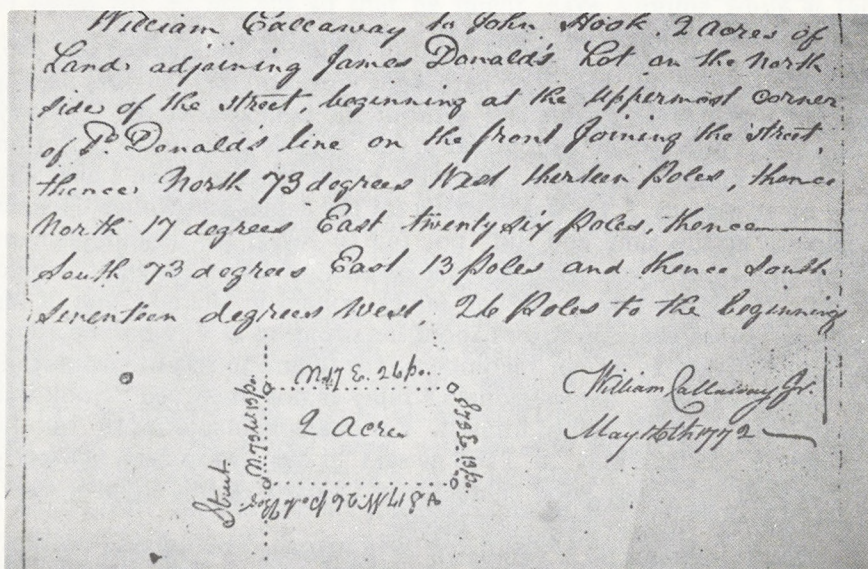 William Callaway to John Hook. 2 Acres of
Land adjoining James Donald's Lot on the North
side of the street, beginning at the uppermost corner
of Sd. Donald's line on the front Joining the street,
thence North 73 degrees West thirteen Poles, thence
North 17 degrees East twenty six Poles, thence
South 73 degrees East 13 Poles and thence South
Seventeen degrees West, 26 Poles to the beginning
N. 17 E. 26 po.
Street
N. 73 W. 13 po.
2 Acres
S 73 E. 13 po.
S 17 W. 26 po. to
William Callaway Jr.
May 16th 1772